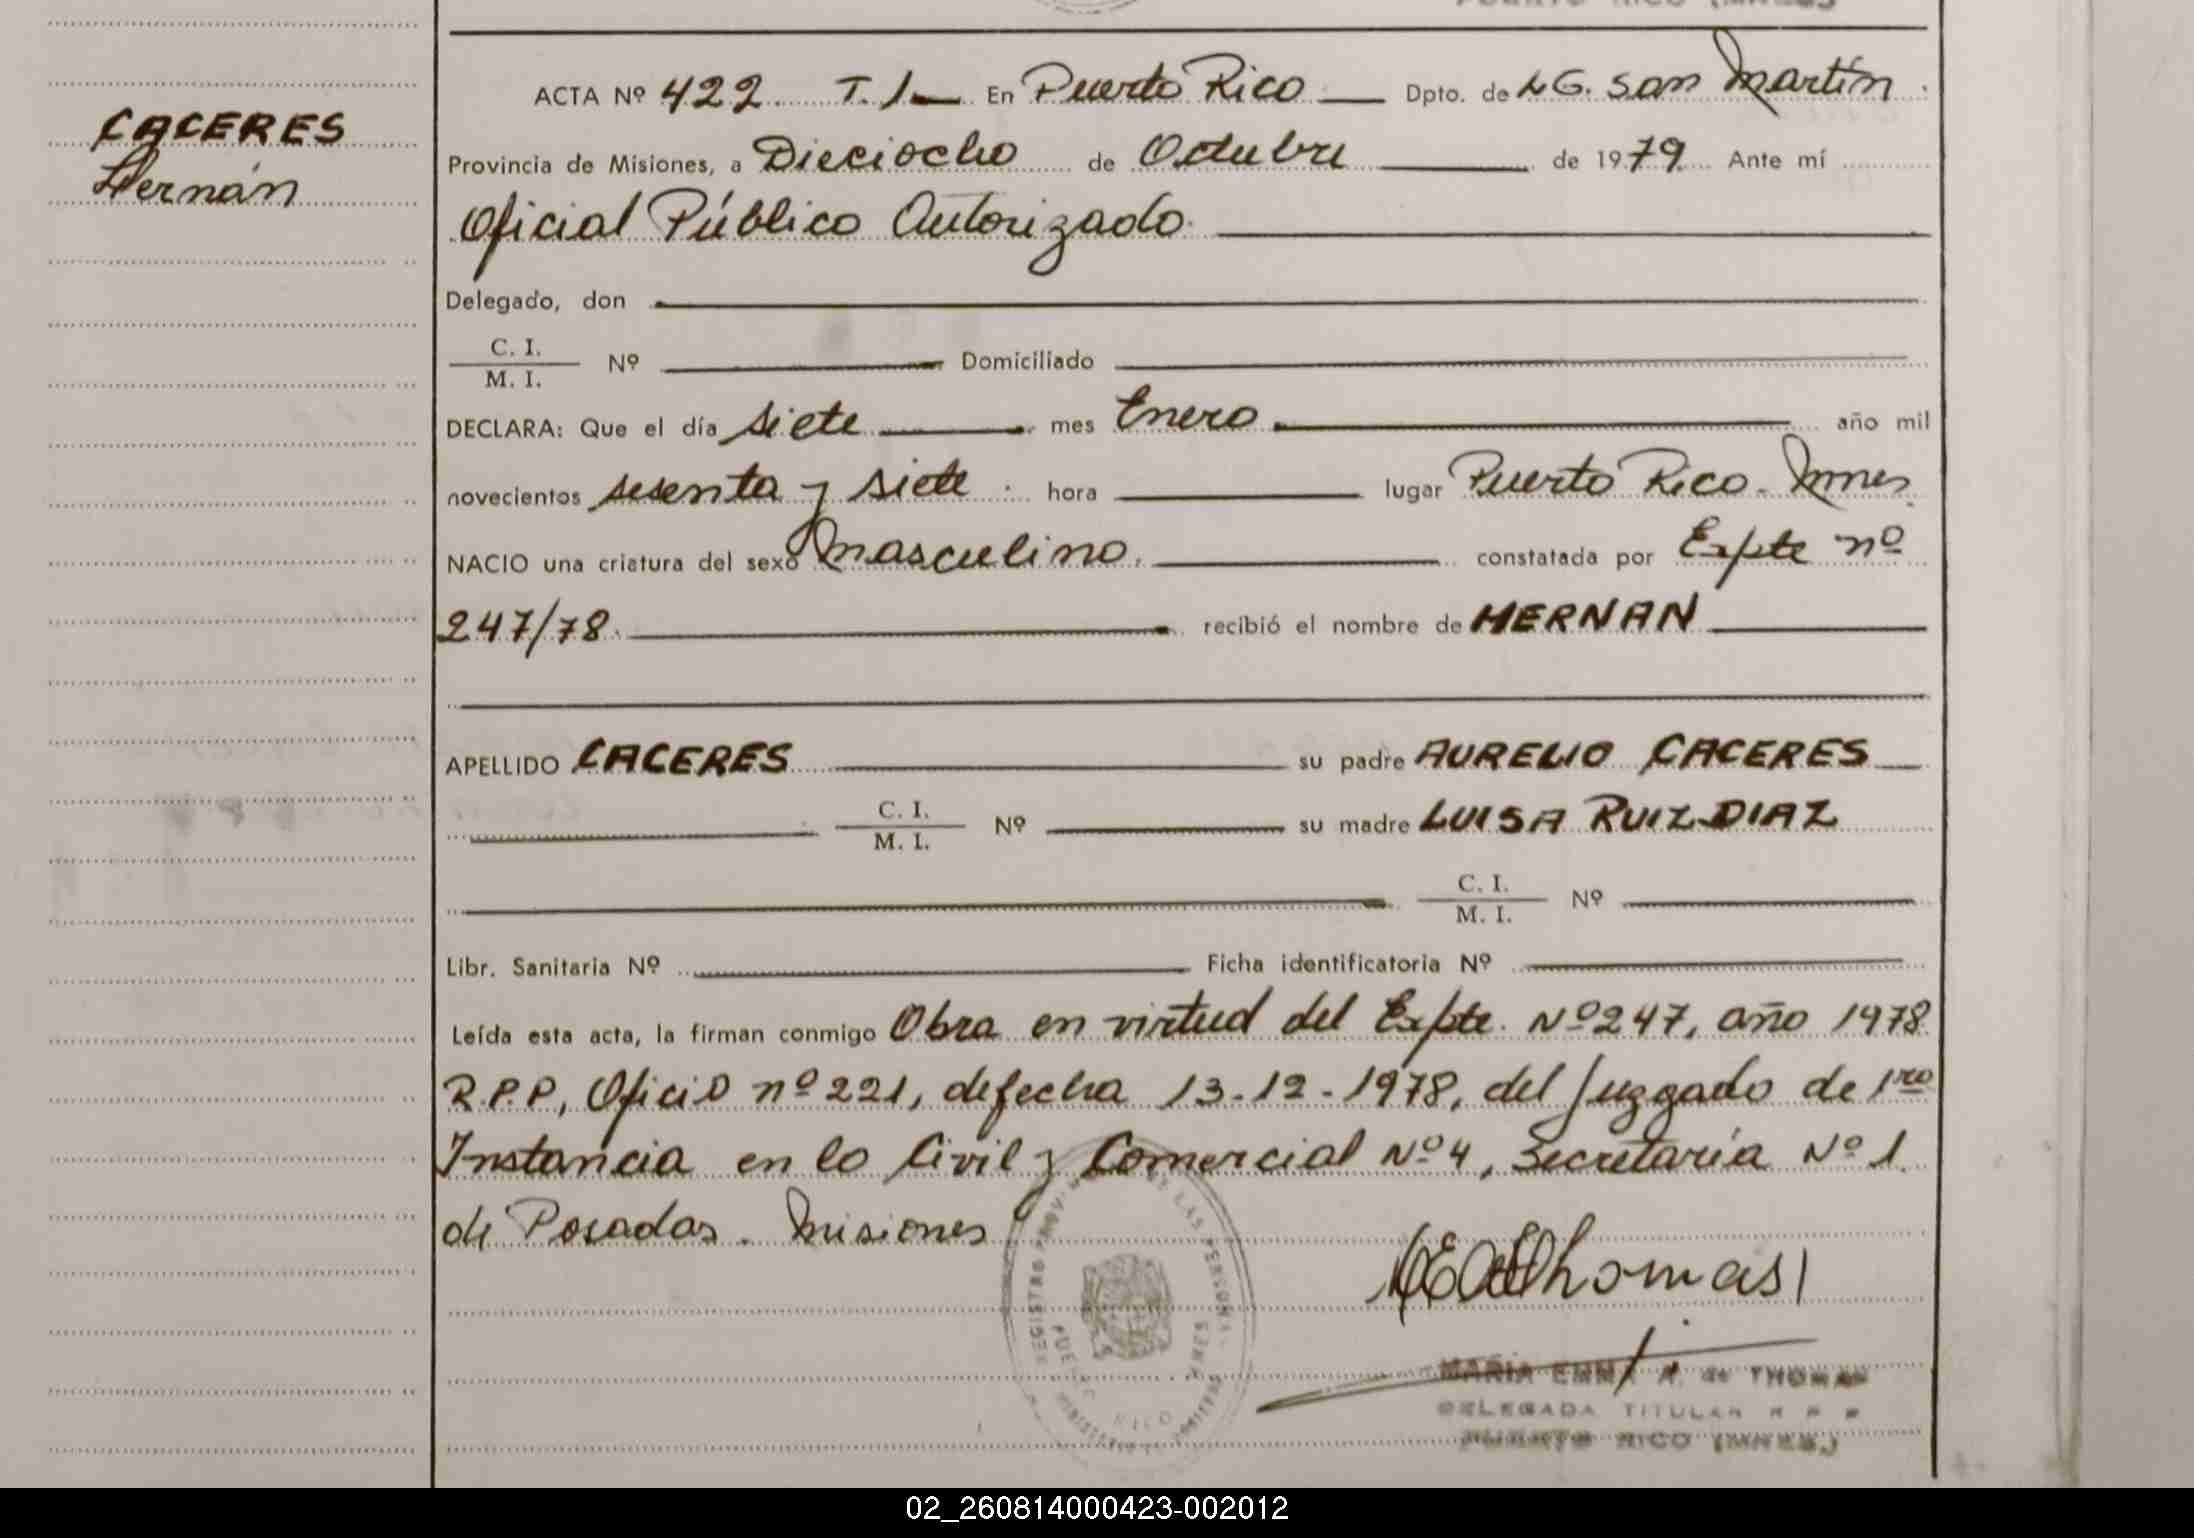 CACERES
Hernán
ACTA Nº 422 T. 1 En Puerto Rico Dpto. de LG. San Martín
Provincia de Misiones, a Dieciocho de Octubre de 1979. Ante mí
Oficial Público Autorizado.
Delegado, don
C. I.
M. I. Nº Domiciliado
DECLARA: Que el día siete mes Enero año mil
novecientos sesenta y siete. hora lugar Puerto Rico. Mnes.
NACIO una criatura del sexo Masculino. constatada por Expte nº
247/78. recibió el nombre de HERNAN
APELLIDO CACERES su padre AURELIO CACERES
C. I.
M. I. Nº su madre LUISA RUIZ DIAZ
C. I.
M. I. Nº
Libr. Sanitaria Nº Ficha identificatoria Nº
Leída esta acta, la firman conmigo Obra en virtud del Expte. Nº 247, año 1978
R.P.P, Oficio nº 221, de fecha 13-12-1978, del Juzgado de 1ro
Instancia en lo Civil y Comercial Nº 4, Secretaría Nº 1.
de Posadas. Misiones
Thomas
MARIA EMMA A. de THOMAS
DELEGADA TITULAR R P P
PUERTO RICO (MNES.)
02_260814000423-002012